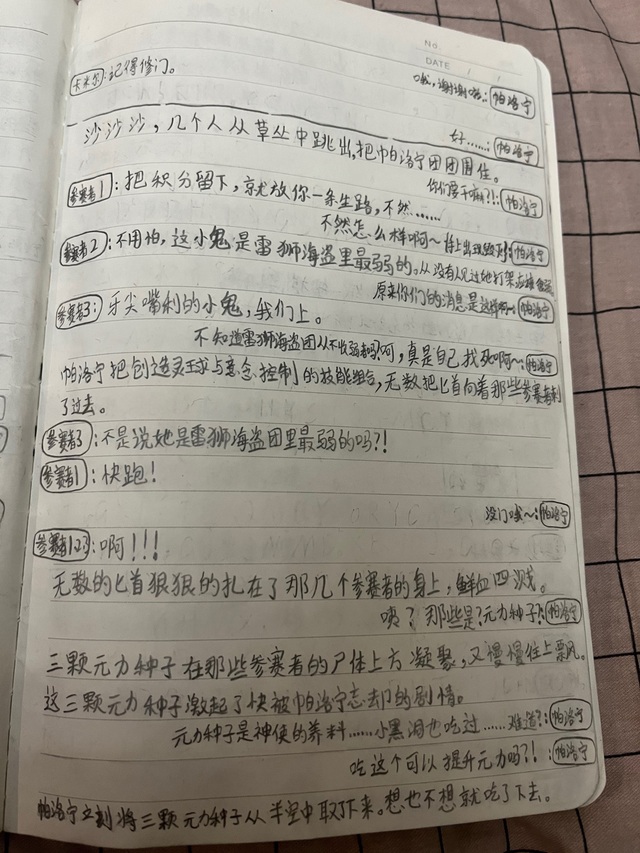 No.
DATE / /
卡米尔：记得修门。
哦，谢谢啦：帕洛宁
好……：帕洛宁
沙沙沙，几个人从草丛中跳出，把帕洛宁团团围住。
你们要干嘛?!：帕洛宁
参赛者1：把积分留下，就放你一条生路，不然……
不然怎么样啊～：帕洛宁
参赛者2：不用怕，这小鬼是雷狮海盗里最弱的。从没有人见过她打架
原来你们的消息是这样啊～：帕洛宁
参赛者3：牙尖嘴利的小鬼，我们上。
不知道雷狮海盗团从不收弱者吗?呵，真是自己找死啊～：帕洛宁
帕洛宁把创造灵球与意念控制的技能组合，无数把匕首向着那些参赛者刺
了过去。
参赛者3：不是说她是雷狮海盗团里最弱的吗?!
参赛者1：快跑！
没门哦～：帕洛宁
参赛者123：啊！！！
无数的匕首狠狠的扎在了那几个参赛者的身上，鲜血四溅。
咦？那些是?元力种子?：帕洛宁
三颗元力种子在那些参赛者的尸体上方凝聚，又慢慢往上飘。
这三颗元力种子激起了快被帕洛宁忘却的剧情。
元力种子是神使的养料……小黑洞也吃过……难道?：帕洛宁
吃这个可以提升元力吗?!：帕洛宁
帕洛宁立刻将三颗元力种子从半空中取下来。想也不想就吃了下去。